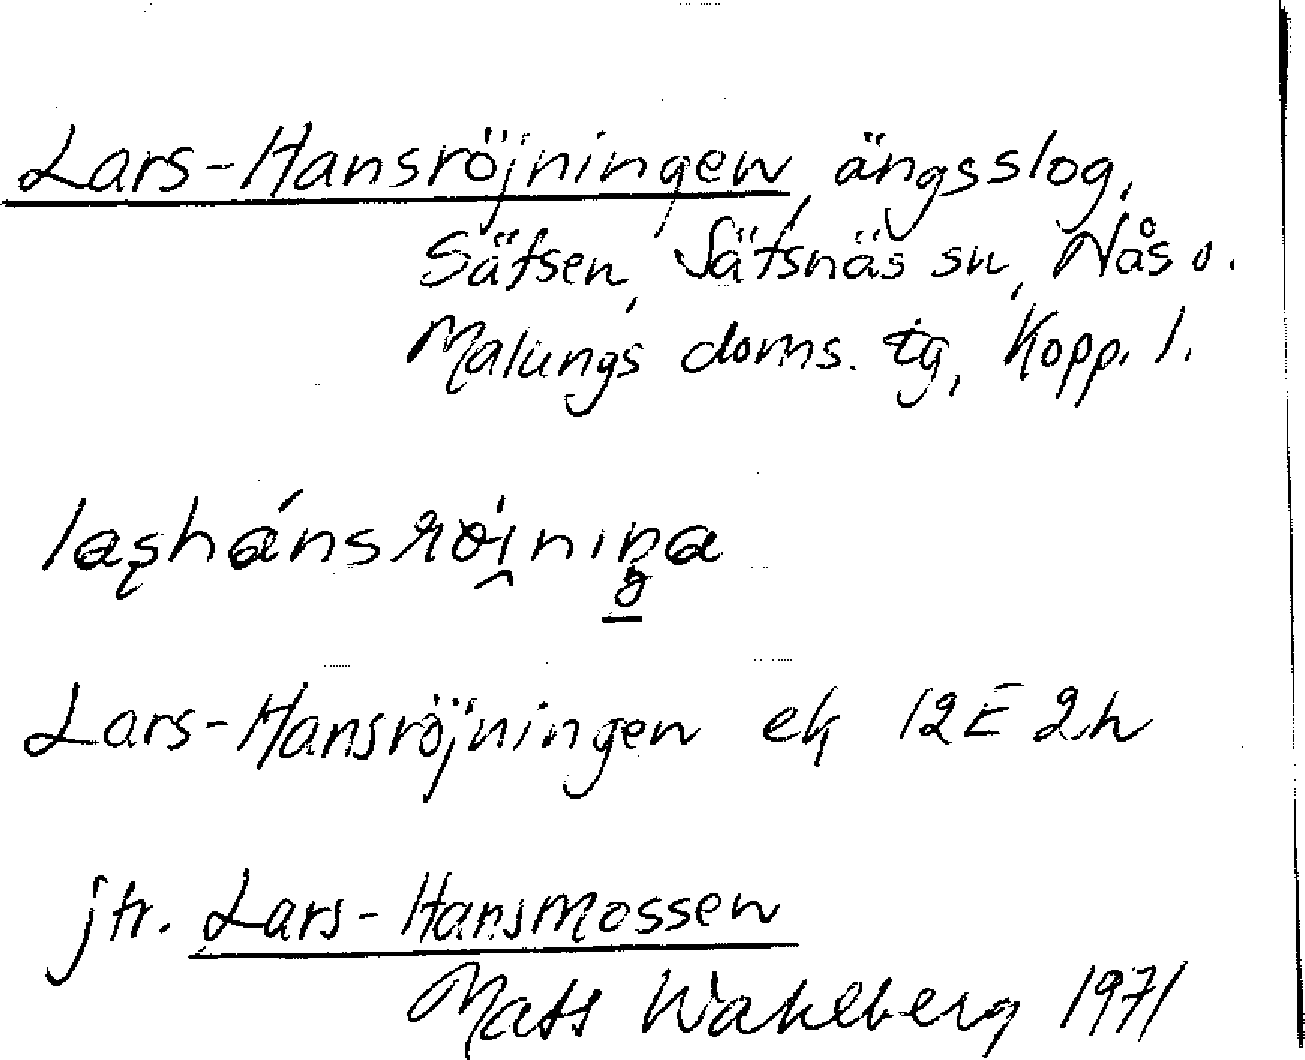 Lars-Hansröjningen, ängsslog,
Säfsen, Säfsnäs sn, Nås o.
Malungs doms. tg, Kopp. l.
Lars-Hansröjningen ek 12E 2h
jfr. Lars-Hansmossen
Mats Wahlberg 1971